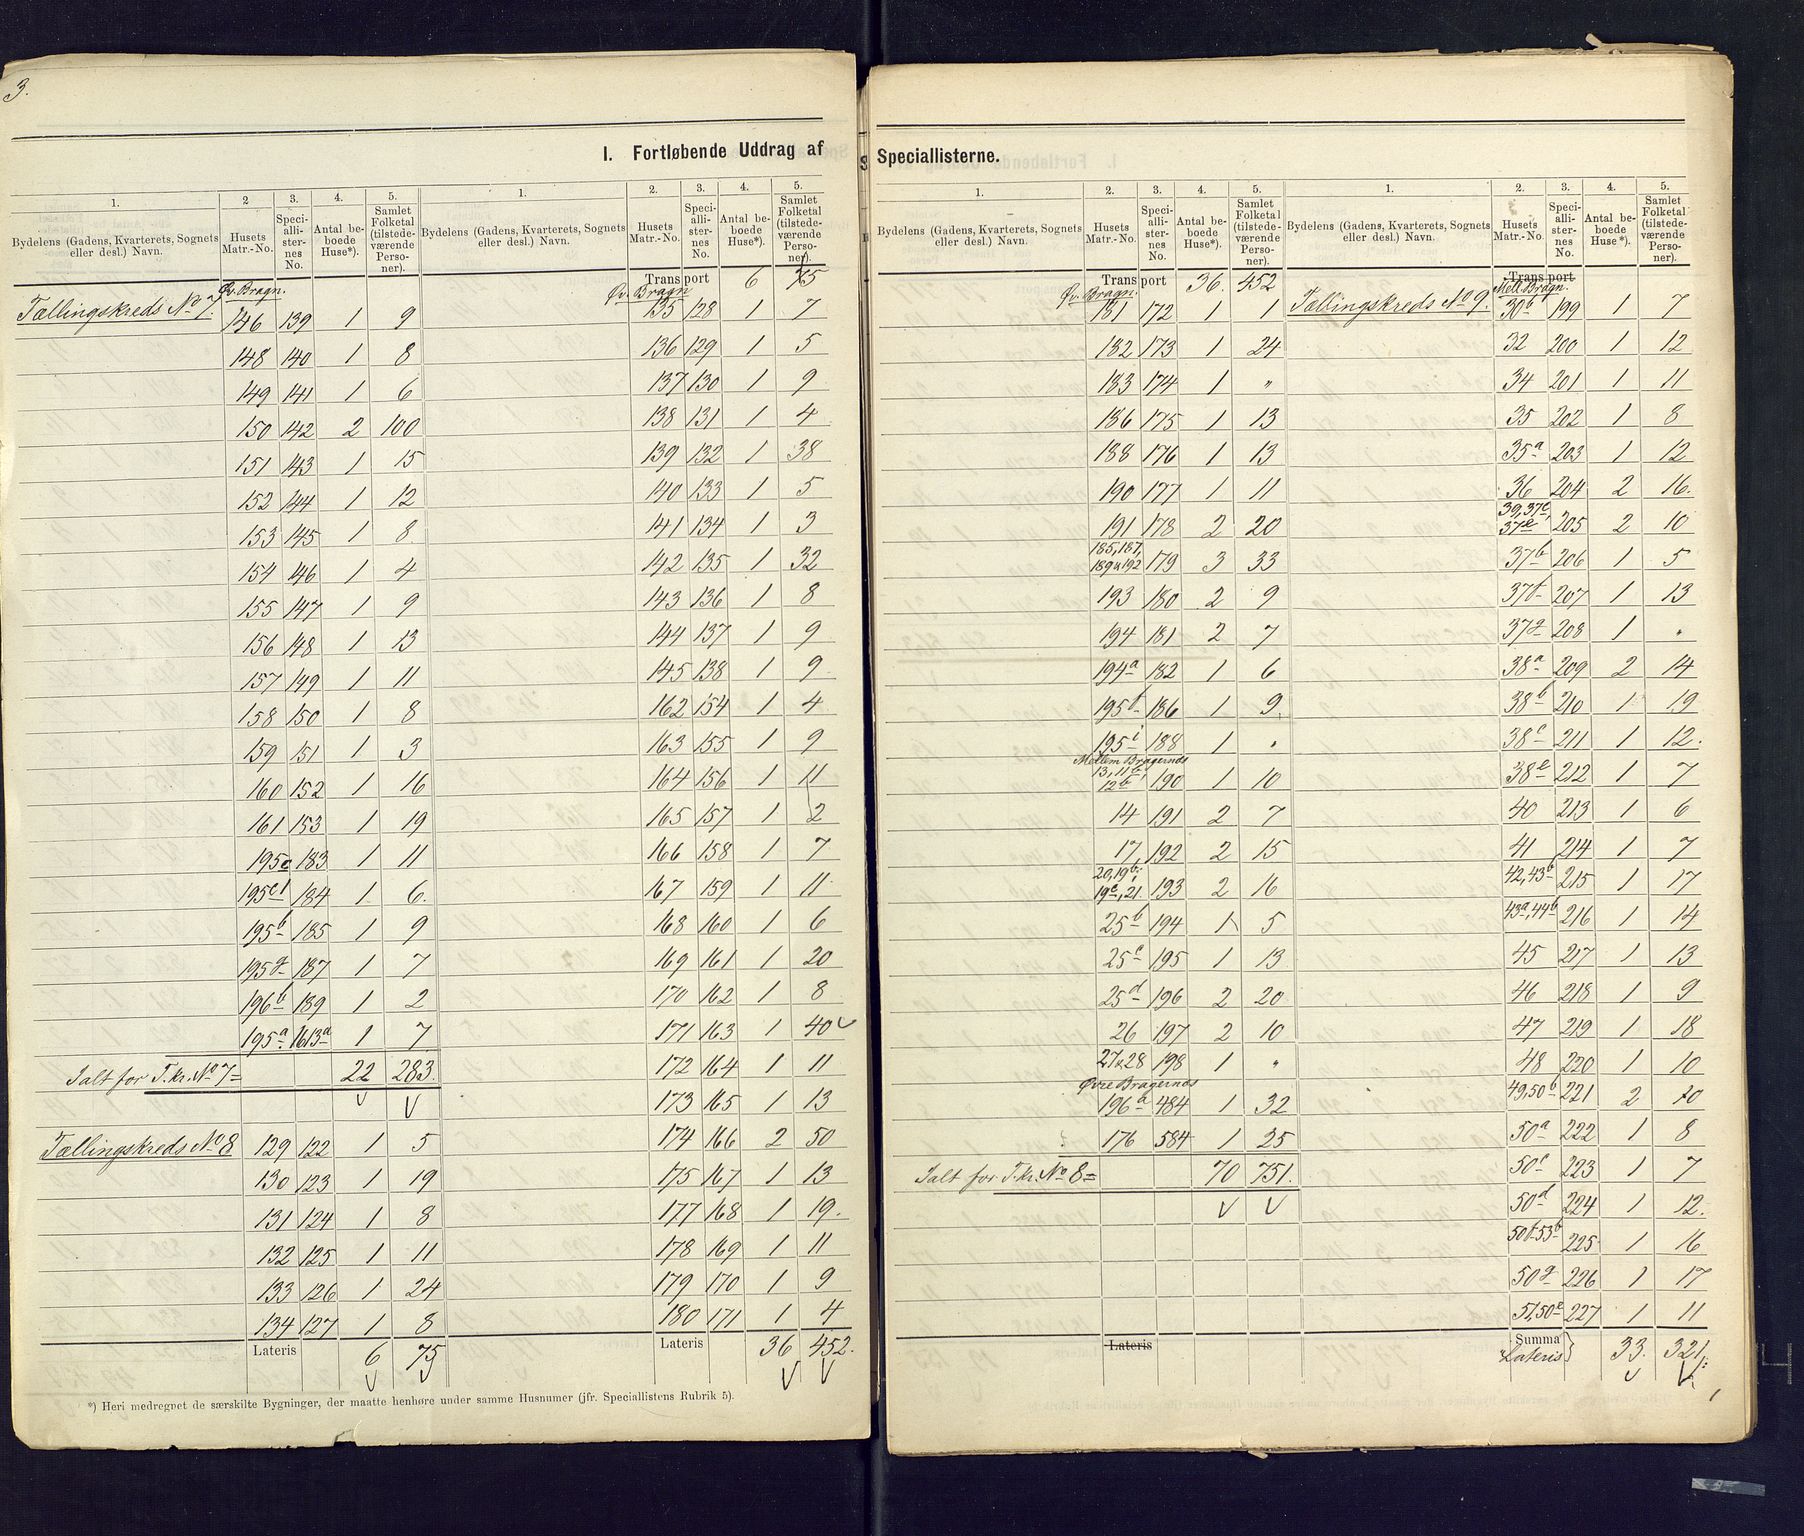 3.
I. Fortløbende Uddrag af Speciallisterne.
1. 2 3. 4. 5.
Bydelens (Gadens, Kvarterets, Sognets eller desl.) Navn. Husets Matr.-No. Speciallisternes No. Antal beboede Huse*). Samlet Folketal (tilstedeværende Personer).
Øv. Bragn.
Tællingskreds No 7. 146 139 1 9
148 140 1 8
149 141 1 6
150 142 2 100
151 143 1 15
152 144 1 12
153 145 1 8
154 146 1 4
155 147 1 9
156 148 1 13
157 149 1 11
158 150 1 8
159 151 1 3
160 152 1 16
161 153 1 19
195c 183 1 11
184 1 6.
195b 185 1 9
195g 187 1 7
196b 189 1 2
195a 1 7
Ialt for T.kr. No 7 = 22 283
Tællingskreds No 8 129 122 1 5
130 123 1 19
131 124 1 8
132 125 1 11
133 126 1 24
134 127 1 8
Lateris 6 75
1. 2. 3. 4. 5.
Bydelens (Gadens, Kvarterets, Sognets eller desl.) Navn. Husets Matr.-No. Speciallisternes No. Antal beboede Huse*). Samlet Folketal (tilstedeværende Personer).
Transport 6 75
Øv. Bragn
135 128 1 7
136 129 1 5
137 130 1 9
138 131 1 4
139 132 1 38
140 133 1 5
141 134 1 3
142 135 1 32
143 136 1 8
144 137 1 9
145 138 1 9
162 154 1 4
163 155 1 9
164 156 1 11
165 157 1 2
166 158 1 7
167 159 1 11
168 160 1 6
169 161 1 20
170 162 1 8
171 163 1 40
172 164 1 11
173 165 1 13
174 166 2 50
175 167 1 13
177 168 1 19.
178 169 1 11
179 170 1 9
180 171 1 4
Lateris 36 452.
*) Heri medregnet de særskilte Bygninger, der maatte henhøre under samme Husnumer (jfr. Speciallistens Rubrik 5).
1. 2. 3. 4. 5.
Bydelens (Gadens, Kvarterets, Sognets eller desl.) Navn. Husets Matr.-No. Speciallisternes No. Antal beboede Huse*). Samlet Folketal (tilstedeværende Personer).
Transport 36. 452
Øv. Bragn.
181 172 1 1
182 173 1 24
183 174 1 "
186 175 1 13
188 176 1 13
190 177 1 11
191 178 2 20
185, 187,
189 & 192 179 3 33
193 180 2 9
194 181 2 7
194a 182 1 6
195f 186 1 9.
195i 188 1 "
Mellem Bragernæs
13, 11b,
12b 190 1 10
14 191 2 7
17 192 2 15
20, 19b,
19c, 21. 193 2 16
25b 194 1 5
25c 195 1 13
25d 196 2 20
26 197 2 10
27 & 28 198 1 "
Øvre Bragernæs
196a 484 1 32
176 584 1 25
Ialt for T.kr. No 8 = 70 751.
Lateris
1. 2. 3. 4. 5.
Bydelens (Gadens, Kvarterets, Sognets eller desl.) Navn. Husets Matr.-No. Speciallisternes No. Antal beboede Huse*). Samlet Folketal (tilstedeværende Personer).
Transport
Mell. Bragn.
Tællingskreds No 9. 30b 199 1 7
32 200 1 12
34 201 1 11
35 202 1 8
35a 203 1 12
36 204 2 16.
39, 37c,
37e 205 2 10
37b 206 1 5
37f 207 1 13
37g 208 1 "
38a 209 2 14
38b 210 1 19
38c 211 1 12.
38e 212 1 7
40 213 1 6
41 214 1 7
42, 43b 215 1 17
43a, 44b 216 1 14
45 217 1 13
46 218 1 9
47 219 1 18
48 220 1 10
49, 50b 221 2 10
50a 222 1 8
50c 223 1 7
50d 224 1 12.
50f 53b 225 1 16
50g 226 1 17
51, 50e 227 1 11
Summa
Lateris 33. 321